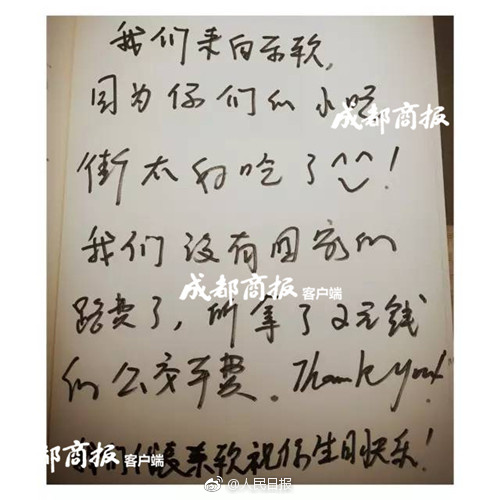 我们来自东软,
因为你们的小吃
成都商报
街太好吃了^^!
我们没有回家的
成都商报 客户端
路费了,所拿了2元钱
的公交车费。Thank you!
成都商报 客户端
东软祝你生日快乐!
@人民日报